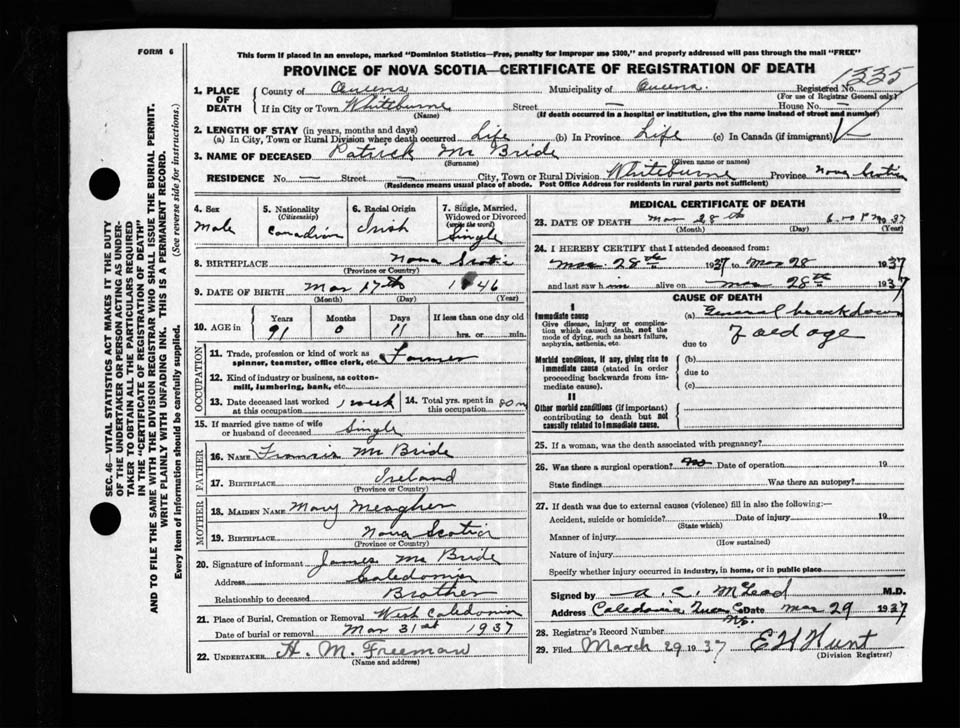 FORM 6
This form if placed in an envelope, marked "Dominion Statistics—Free, penalty for improper use $300," and properly addressed will pass through the mail "FREE"
PROVINCE OF NOVA SCOTIA—CERTIFICATE OF REGISTRATION OF DEATH
1335
1. PLACE OF DEATH
County of Queens Municipality of Queens. Registered No.
(For use of Registrar General only)
If in City or Town Whiteburne Street — House No. —
(Name) (If death occurred in a hospital or institution, give the name instead of street and number)
2. LENGTH OF STAY (in years, months and days)
(a) In City, Town or Rural Division where death occurred Life (b) In Province Life (c) In Canada (if immigrant)
3. NAME OF DECEASED Patrick Mc Bride
(Surname) (Given name or names)
RESIDENCE No. — Street — City, Town or Rural Division Whiteburne Province Nova Scotia
(Residence means usual place of abode. Post Office Address for residents in rural parts not sufficient)
4. Sex Male
5. Nationality (Citizenship) Canadian
6. Racial Origin Irish
7. Single, Married, Widowed or Divorced (write the word) Single
8. BIRTHPLACE Nova Scotia
(Province or Country)
9. DATE OF BIRTH Mar 17th 1846
(Month) (Day) (Year)
10. AGE in Years Months Days If less than one day old
91 0 11 hrs. or min.
OCCUPATION
11. Trade, profession or kind of work as spinner, teamster, office clerk, etc. Farmer
12. Kind of industry or business, as cotton-mill, lumbering, bank, etc.
13. Date deceased last worked at this occupation 1 week
14. Total yrs. spent in this occupation 80
15. If married give name of wife or husband of deceased Single
FATHER
16. NAME Francis Mc Bride
17. BIRTHPLACE Ireland
(Province or Country)
MOTHER
18. MAIDEN NAME Mary Meagher
19. BIRTHPLACE Nova Scotia
(Province or Country)
20. Signature of informant James Mc Bride
Address Caledonia
Relationship to deceased Brother
21. Place of Burial, Cremation or Removal West Caledonia
Date of burial or removal Mar 31st 1937
22. UNDERTAKER H. M. Freeman
(Name and address)
MEDICAL CERTIFICATE OF DEATH
23. DATE OF DEATH Mar 28th 6.00 P.M. 37
(Month) (Day) (Year)
24. I HEREBY CERTIFY that I attended deceased from:
Mar. 28th 1937 to Mar 28 1937
and last saw him alive on Mar 28th 1937
CAUSE OF DEATH
I
Immediate cause
Give disease, injury or complication which caused death, not the mode of dying, such as heart failure, asphyxia, asthenia, etc.
(a) General breakdown
due to of old age
Morbid conditions, if any, giving rise to immediate cause (stated in order proceeding backwards from immediate cause).
(b)
due to
(c)
II
Other morbid conditions (if important) contributing to death but not causally related to immediate cause.
25. If a woman, was the death associated with pregnancy?
26. Was there a surgical operation? No Date of operation 19
State findings Was there an autopsy?
27. If death was due to external causes (violence) fill in also the following:—
Accident, suicide or homicide? Date of injury 19
(State which)
Manner of injury
(How sustained)
Nature of injury
Specify whether injury occurred in industry, in home, or in public place
Signed by A. C. McLeod M.D.
Address Caledonia Queens Co Date Mar 29 1937
N.S.
28. Registrar's Record Number
29. Filed March 29 1937 E H Hunt
(Division Registrar)
SEC. 46—VITAL STATISTICS ACT MAKES IT THE DUTY
OF THE UNDERTAKER OR PERSON ACTING AS UNDER-
TAKER TO OBTAIN ALL THE PARTICULARS REQUIRED
IN THE "CERTIFICATE OF REGISTRATION OF DEATH"
AND TO FILE THE SAME WITH THE DIVISION REGISTRAR WHO SHALL ISSUE THE BURIAL PERMIT.
WRITE PLAINLY WITH UNFADING INK. THIS IS A PERMANENT RECORD.
Every item of information should be carefully supplied. (See reverse side for instructions.)